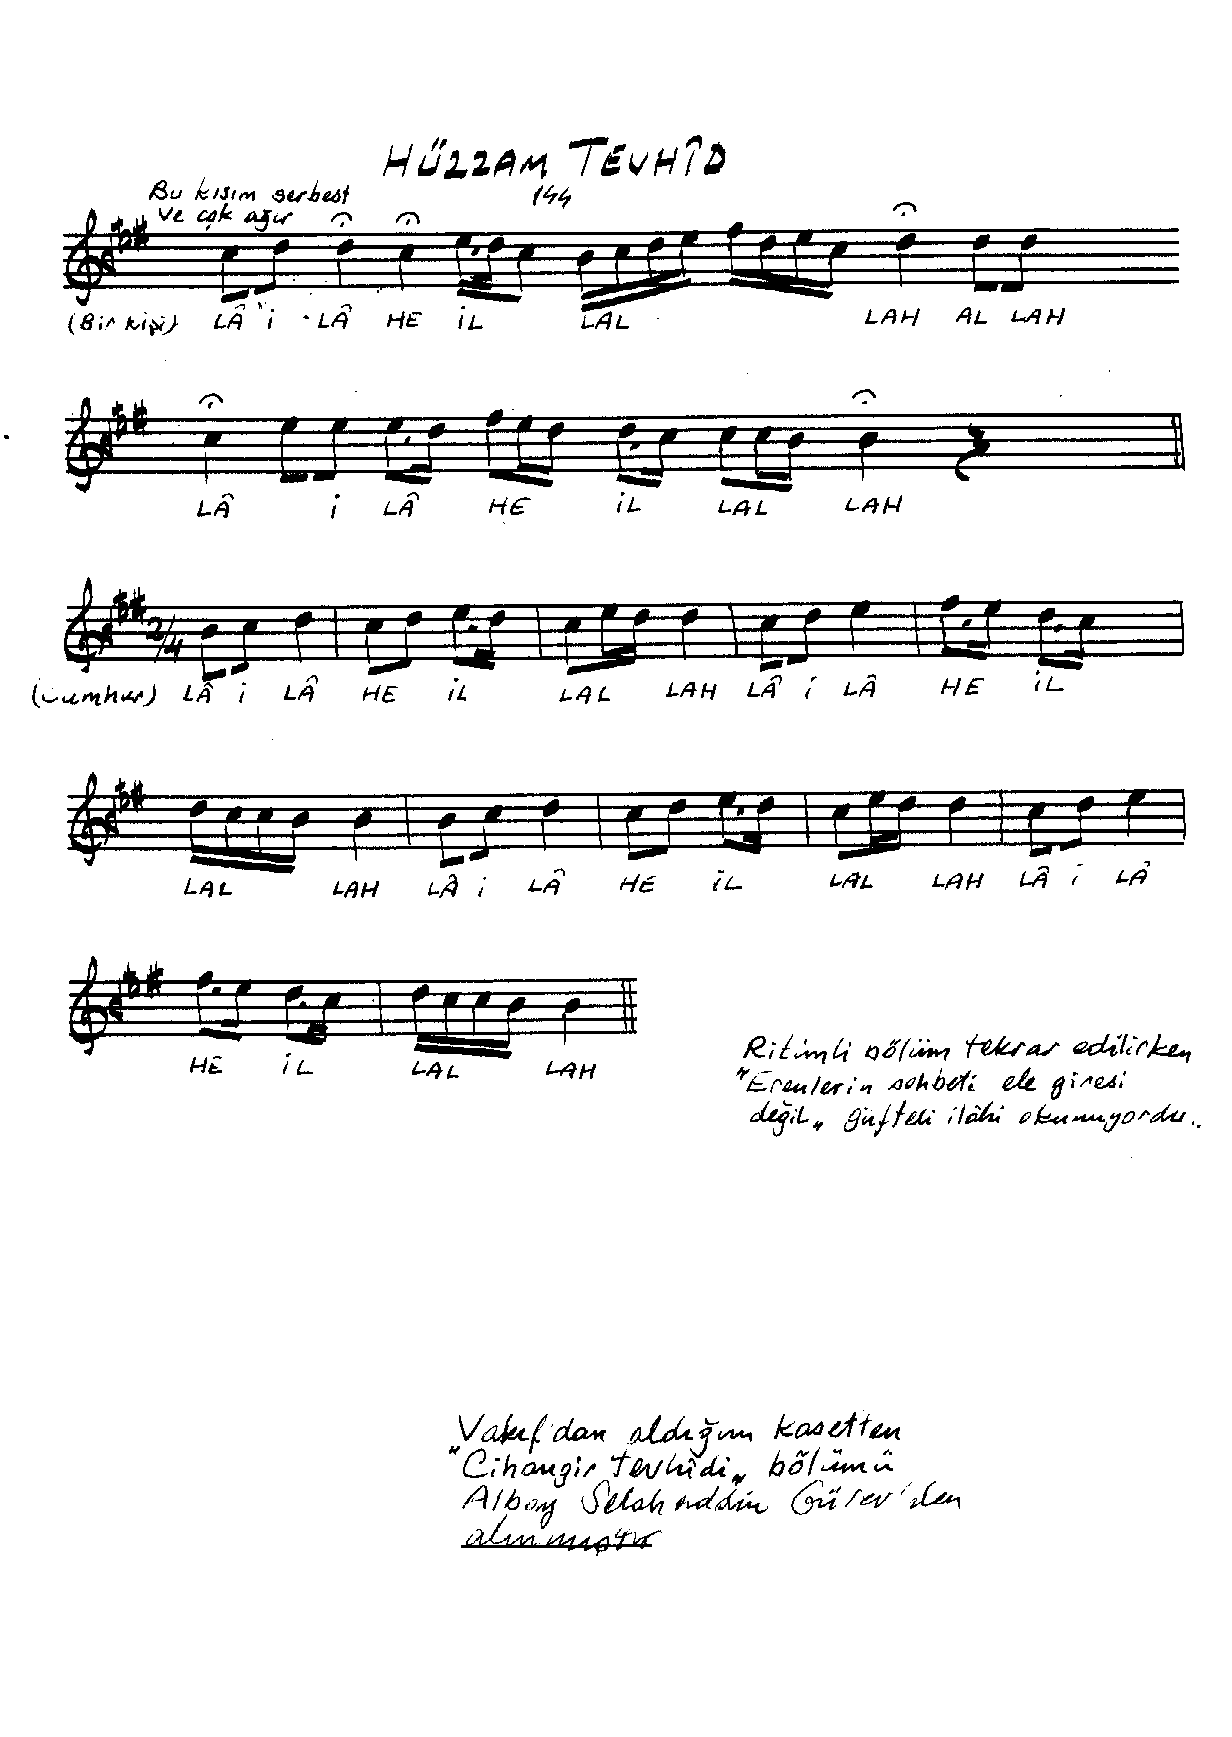 HÜZZAM TEVHÎD
144
Bu kısım serbest
ve çok ağır
(Bir kişi) LÂ İ LÂ HE İL LAL LAH AL LAH
LÂ İ LÂ HE İL LAL LAH
2/4
(Cumhur) LÂ İ LÂ HE İL LAL LAH LÂ İ LÂ HE İL
LAL LAH LÂ İ LÂ HE İL LAL LAH LÂ İ LÂ
HE İL LAL LAH
Ritimli bölüm tekrar edilirken
"Erenlerin sohbeti ele giresi
değil" güfteli ilâhi okunuyordu..
Vakıf'dan aldığım kasetten
"Cihangir Tevhîdi" bölümü
Albay Selahaddin Gürer'den
alınmıştır